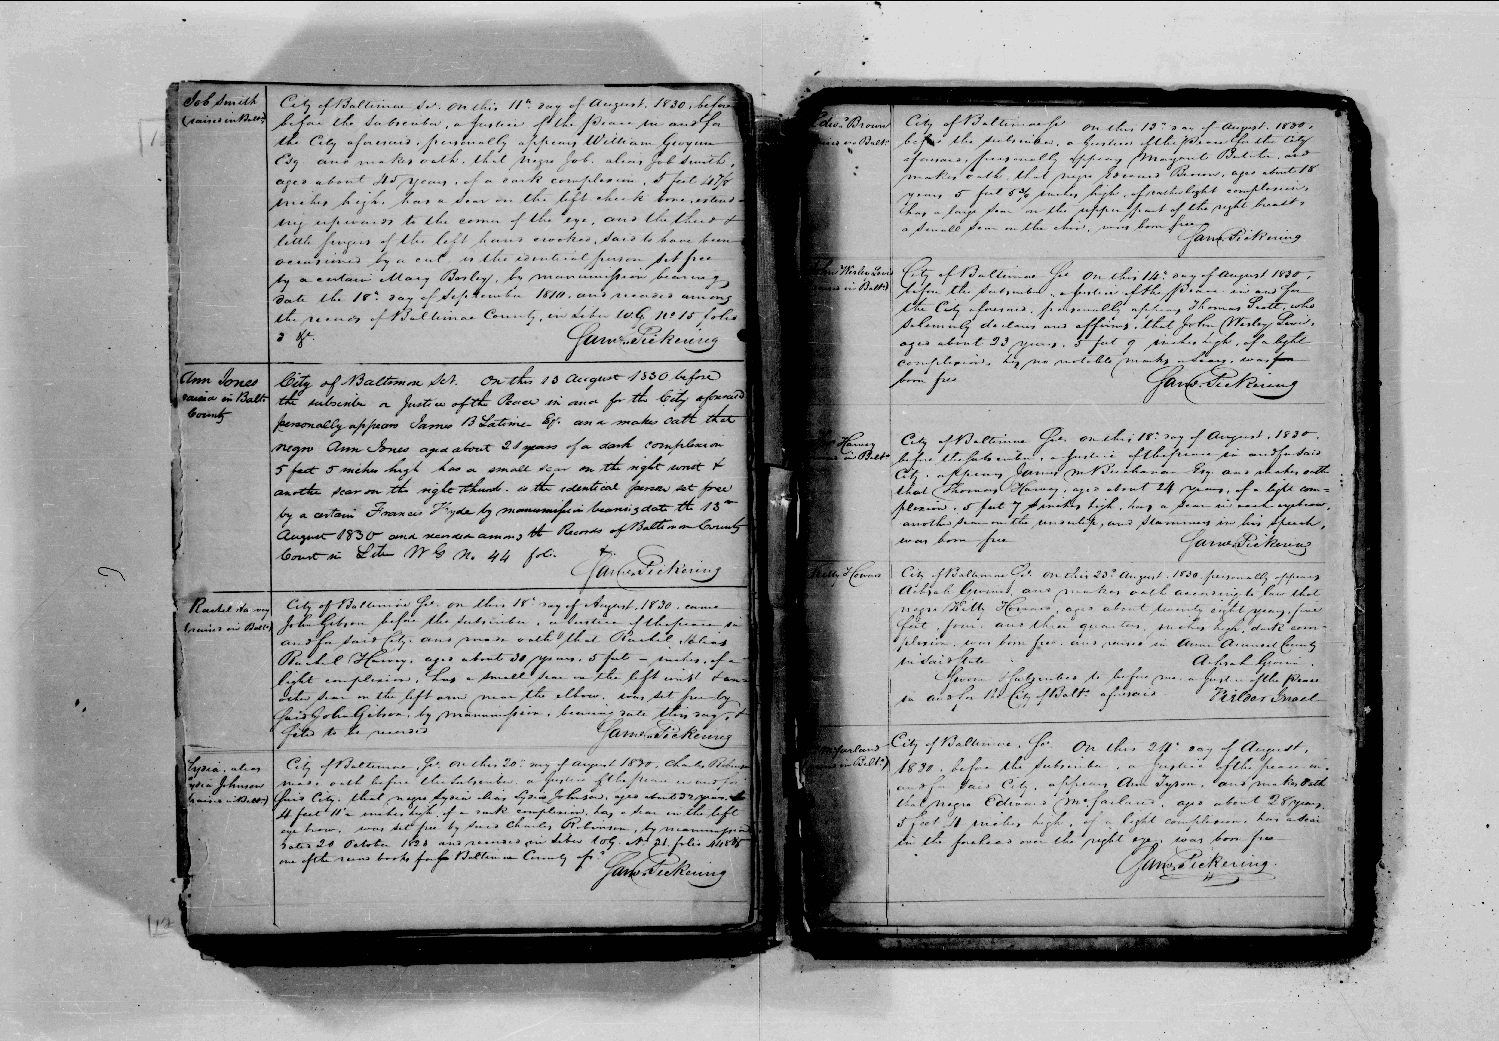 Job Smith
(raised in Balt.)
City of Baltimore Sc. On this 11th day of August, 1830, before
before the subscriber, a Justice of the Peace in and for
the City aforesaid, personally appears William Gwynn
Esq and makes oath, that negro Job, alias Job Smith,
aged about 45 years, of a dark complexion, 5 feet 4 7/8
inches high, has a scar on the left cheek bone, extend-
ing upwards to the corner of the eye, and the third &
little fingers of the left hand crooked, said to have been
occasioned by a cut is the identical person set free
by a certain Mary Bosley, by manumission bearing
date the 18th day of September 1810, and recorded among
the records of Baltimore County, in Liber W.G. No 15, folio
3 &c.
James Pickering
Ann Jones
raised in Balt
County
City of Baltimore Sct. On this 13 August 1830 before
the subscriber a Justice of the Peace in and for the City aforesaid
personally appears James B Latimer Esq. and makes oath that
negro Ann Jones aged about 21 years of a dark complexion
5 feet 5 inches high has a small scar on the right wrist &
another scar on the right thumb. is the identical person set free
by a certain Francis Hyde by manumission bearing date the 13th
August 1830 and recorded among the Records of Baltimore County
Court in Liber W G No 44 fol.
James Pickering
Rachel Harvey
(raised in Balt)
City of Baltimore Sc. on this 18th day of August, 1830, came
John Gibson before the subscriber, a Justice of the peace in
and for said City, and made oath that Rachel, alias
Rachel Harvey, aged about 30 years, 5 feet – inches, of a
light complexion, has a small scar on the left wrist & an-
other scar on the left arm near the elbow, was set free by
said John Gibson, by manumission, bearing date this day, &
filed to be recorded
James Pickering
Lydia, alias
Lydia Johnson
(raised in Balt)
City of Baltimore, Sc. on this 20th day of August 1830, Charles Robinson
made oath before the Subscriber, a Justice of the peace in and for
said City, that negro Lydia alias Lydia Johnson, aged about 32 years,
4 feet 11 inches high, of a dark complexion, has a scar on the left
eye brow, was set free by said Charles Robinson, by manumission
dated 20 October 1823 and recorded in Liber W.G. No 31, folio
one of the record books for Baltimore County &c.
James Pickering
Edwd Brown
raised in Balt.
City of Baltimore Sc on this 13th day of August, 1830,
before the subscriber, a Justice of the Peace for the City
aforesaid, personally appears Margaret and
makes oath that negro Edward Brown, aged about 18
years 5 feet inches high, of rather light complexion,
has a large scar on the upper part of the right breast &
a small scar on the chin, was born free
James Pickering
John Wesley Lewis
(raised in Balt)
City of Baltimore Sc. on this 14th day of August 1830,
before the subscriber, a Justice of the Peace in and for
the City aforesaid, personally appears Thomas who
solemnly declares and affirms, that John Wesley Lewis,
aged about 23 years, 5 feet 9 inches high, of a light
complexion, has no notable marks or scars, was free
born free
James Pickering
Harvey
raised in Balt.
City of Baltimore Sc. on this 18th day of August, 1830,
before the subscriber, a Justice of the peace in and for said
City, appears James M. Buchanan Esq and makes oath
that Thomas Harvey, aged about 24 years, of a light com-
plexion, 5 feet 7 inches high, has a scar in each eyebrow,
another scar on the and stammers in his speech,
was born free
James Pickering
Kitty Howard
City of Baltimore Sc. on this 23d August, 1830, personally appears
Achsah and makes oath according to law that
negro Kitty Howard, aged about twenty eight years, five
feet, four and three quarter, inches high, dark com-
plexion, was born free and raised in Anne Arundel County
in said State
Achsah
Sworn & subscribed to before me a Justice of the Peace
in and for the City of Balt. aforesaid
Fielder Israel
McFarland
(raised in Balt.)
City of Baltimore, Sc. On this 24th day of August,
1830, before the subscriber, a Justice of the peace in
and for said City, appears Ann Tyson, and makes oath
that negro Edward McFarland, aged about 28 years,
5 feet 4 inches high, of a light complexion, has a scar
in the forehead over the right eye, was born free
James Pickering.